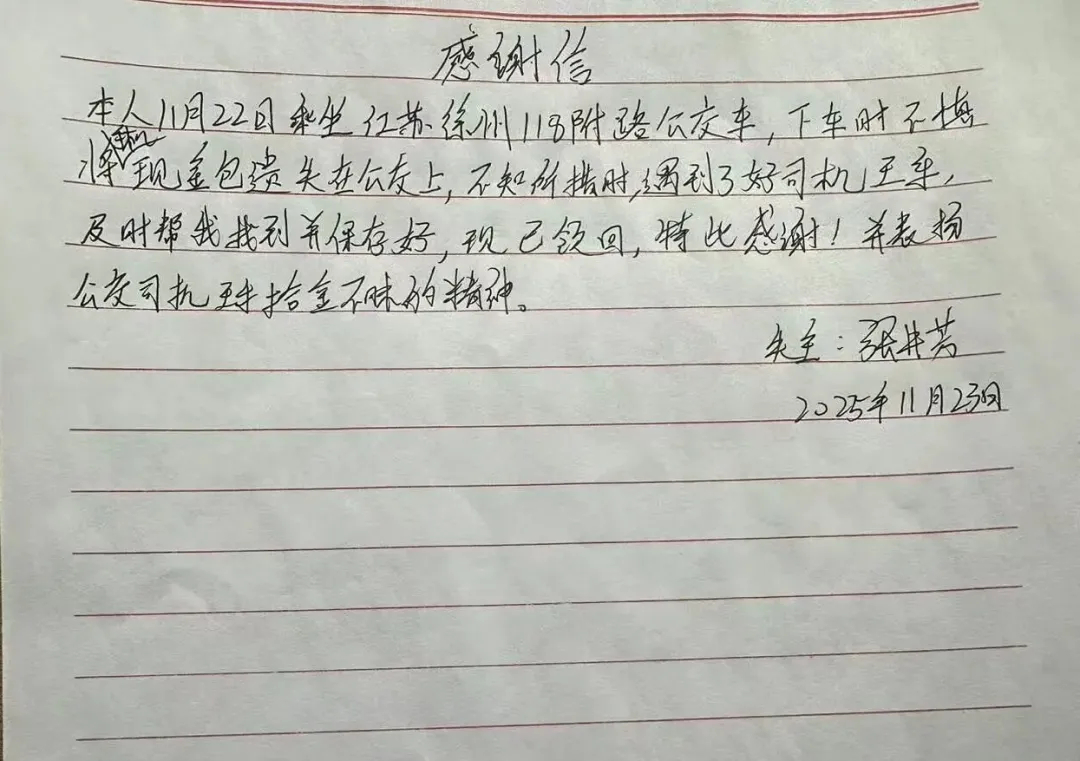 感谢信
本人11月22日乘坐江苏徐州118附路公交车,下车时不慎
将现金包遗失在公交上,不知所措时,遇到了好司机王军,
及时帮我找到并保存好,现已领回,特此感谢!并表扬
公交司机王军拾金不昧的精神。
失主:张井芳
2025年11月23日